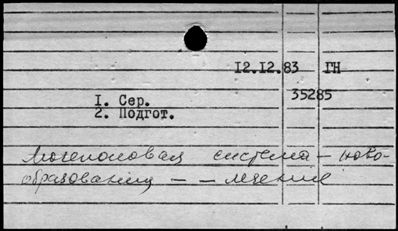 12.12.83 ГН
35285
1. Сер.
2. Подгот.
Мочеполовая система – ново-
образования – – лечение